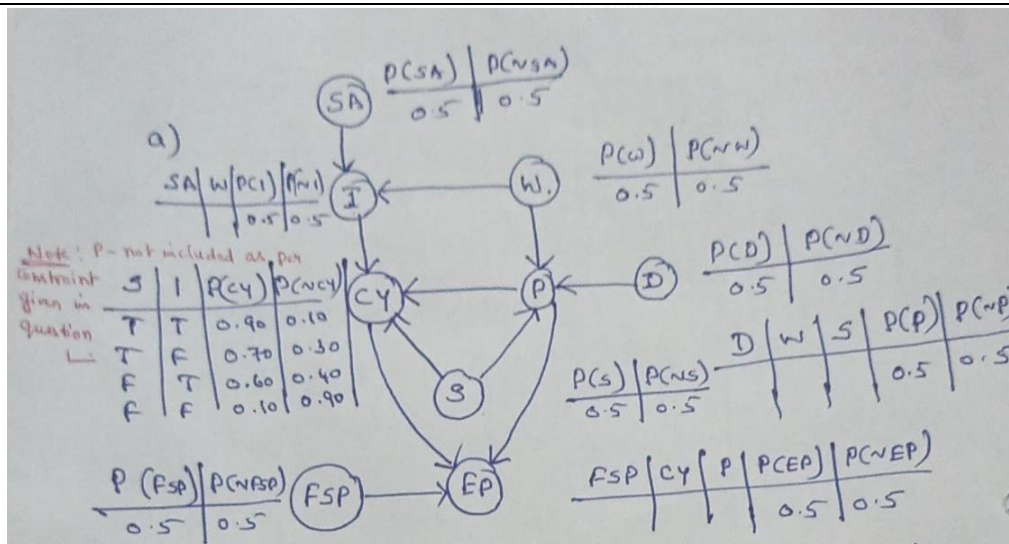 P(SA) | P(~SA)
0.5 | 0.5
SA
a)
P(W) | P(~W)
0.5 | 0.5
SA | W | P(I) | P(~I)
0.5 | 0.5
I
W.
P(D) | P(~D)
0.5 | 0.5
Note: P - not included as per
constraint
given in
question
S | I | P(CY) | P(~CY)
T | T | 0.90 | 0.10
T | F | 0.70 | 0.30
F | T | 0.60 | 0.40
F | F | 0.10 | 0.90
CY
P
D
D | W | S | P(P) | P(~P)
0.5 | 0.5
S
P(S) | P(~S)
0.5 | 0.5
P(FSP) | P(~FSP)
0.5 | 0.5
FSP
EP
FSP | CY | P | P(EP) | P(~EP)
0.5 | 0.5